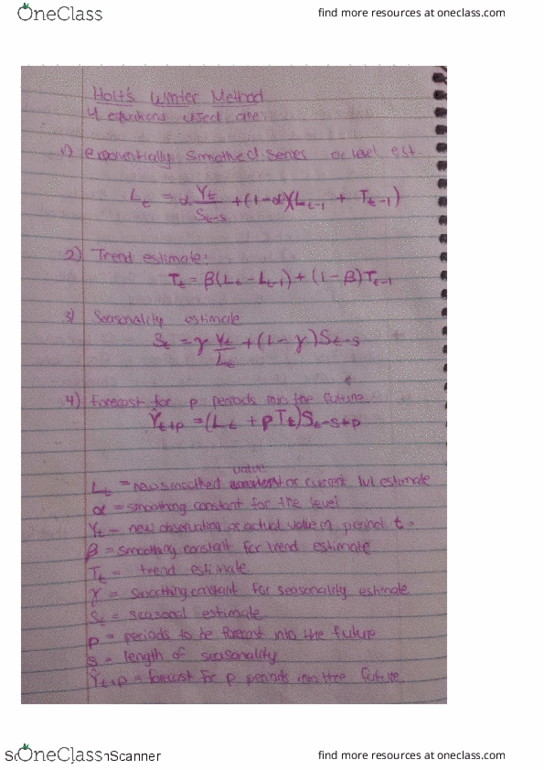 OneClass
find more resources at oneclass.com
Holt's Winter Method
4 equations used are:
1) exponentially smoothed series or level est.
Lₜ = α Yₜ/Sₜ₋ₛ + (1-α)(Lₜ₋₁ + Tₜ₋₁)
2) Trend estimate:
Tₜ = β(Lₜ - Lₜ₋₁) + (1 - β)Tₜ₋₁
3) Seasonality estimate
Sₜ = γ Yₜ/Lₜ + (1 - γ)Sₜ₋ₛ
4) forecast for p periods into the future.
Ŷₜ₊ₚ = (Lₜ + pTₜ)Sₜ₋ₛ₊ₚ
value
Lₜ = new smoothed or current lvl estimate
α = smoothing constant for the level
Yₜ = new observation or actual value in period t.
β = smoothing constant for trend estimate
Tₜ = trend estimate
γ = smoothing constant for seasonality estimate
Sₜ = seasonal estimate
p = periods to be forecast into the future
s = length of seasonality
Ŷₜ₊ₚ = forecast for p periods into the future
OneClass
Scanner
find more resources at oneclass.com